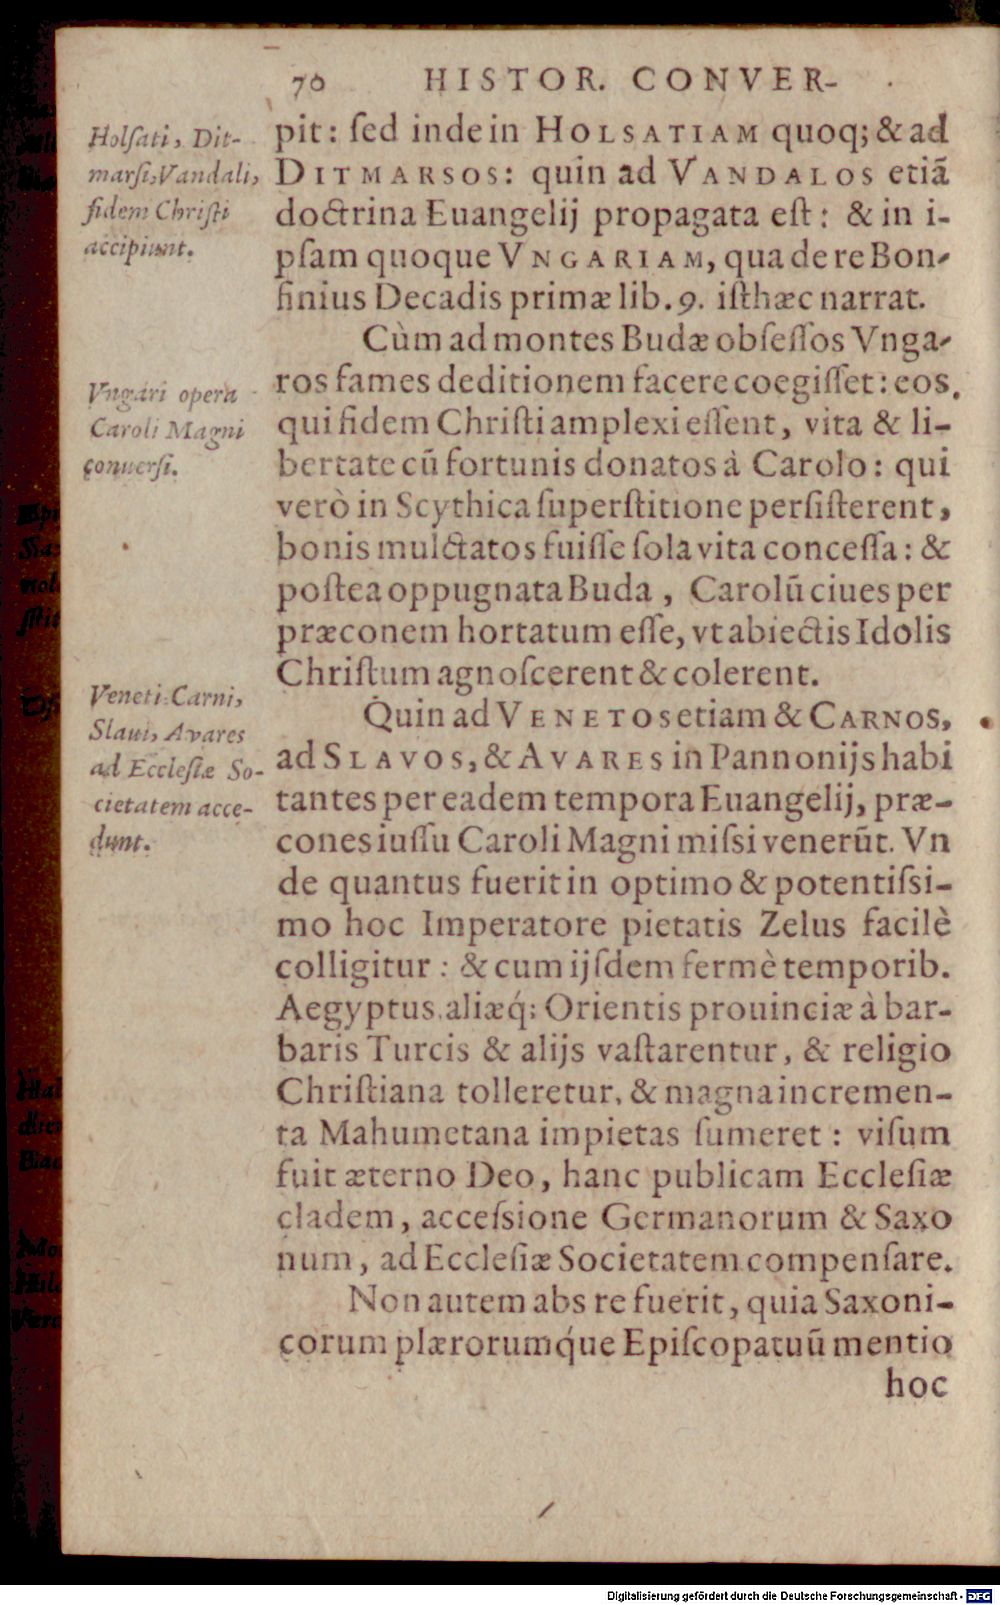 70 HISTOR. CONVER-
Holſati, Dit-
marſi, Vandali,
fidem Chriſti
accipiunt.
pit: ſed inde in HOLSATIAM quoq; & ad
DITMARSOS: quin ad VANDALOS etiã
doctrina Euangelij propagata eſt: & in i-
pſam quoque VNGARIAM, qua de re Bon-
finius Decadis primæ lib. 9. iſthæc narrat.
Vngari opera
Caroli Magni
conuerſi.
Cùm ad montes Budæ obſeſſos Vnga-
ros fames deditionem facere coegiſſet: eos,
qui fidem Chriſti amplexi eſſent, vita & li-
bertate cũ fortunis donatos à Carolo: qui
verò in Scythica ſuperſtitione perſiſterent,
bonis mulctatos fuiſſe ſola vita conceſſa: &
poſtea oppugnata Buda, Carolũ ciues per
præconem hortatum eſſe, vt abiectis Idolis
Chriſtum agnoſcerent & colerent.
Veneti, Carni,
Slaui, Avares
ad Eccleſiæ So-
cietatem acce-
dunt.
Quin ad VENETOS etiam & CARNOS,
ad SLAVOS, & AVARES in Pannonijs habi
tantes per eadem tempora Euangelij, præ-
cones iuſſu Caroli Magni miſsi venerũt. Vn
de quantus fuerit in optimo & potentiſsi-
mo hoc Imperatore pietatis Zelus facilè
colligitur: & cum ijſdem fermè temporib.
Aegyptus, aliæq́; Orientis prouinciæ à bar-
baris Turcis & alijs vaſtarentur, & religio
Chriſtiana tolleretur, & magna incremen-
ta Mahumetana impietas ſumeret: viſum
fuit æterno Deo, hanc publicam Eccleſiæ
cladem, acceſsione Germanorum & Saxo
num, ad Eccleſiæ Societatem compenſare.
Non autem abs re fuerit, quia Saxoni-
corum plærorumq́ue Epiſcopatuũ mentio
hoc
Digitalisierung gefördert durch die Deutsche Forschungsgemeinschaft - DFG